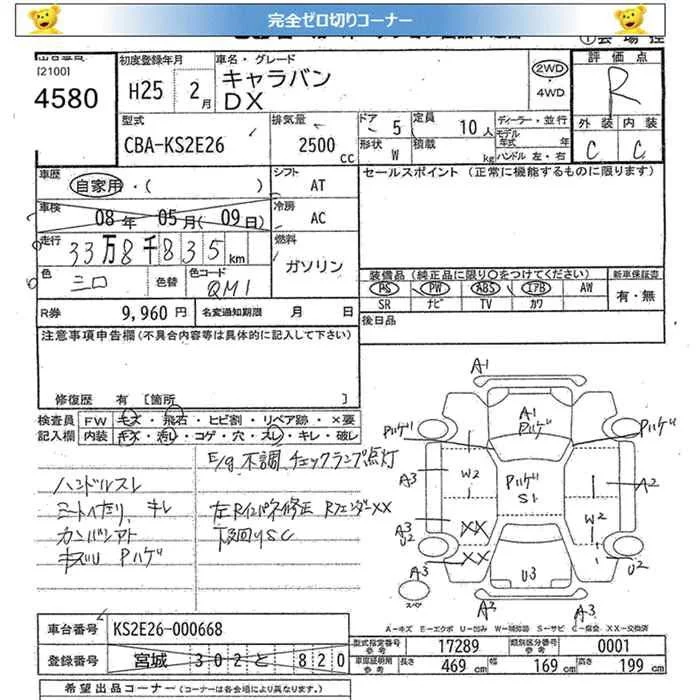 完全ゼロ切りコーナー
[2100]
4580
初度登録年月
H25 2月
車名・グレード
キャラバン
DX
2WD
・
4WD
評価点
R
外装 内装
C C
型式
CBA-KS2E26
排気量
2500 cc
ドア 5
定員 10人
形状 W
積載 kg
ディーラー・並行
モデル
年式 年
ハンドル 左・右
車歴
自家用・( )
シフト AT
車検
08年 05月(09日)
冷房 AC
走行
33万8千835km
燃料 ガソリン
色 シロ
色替
色コード QM1
セールスポイント (正常に機能するものに限ります)
装備品(純正品に限り○をつけてください)
PS PW ABS エアB AW
SR ナビ TV カワ
新車保証書
有・無
R券 9,960円
名変通知期限 月 日
後日品
注意事項申告欄(不具合内容等は具体的に記入して下さい)
修復歴 有 [箇所 ]
検査員 FW キズ・飛石・ヒビ割・リペア跡・×要
記入欄 内装 キズ・汚レ・コゲ・穴・スレ・キレ・破レ
E/g不調 チェックランプ点灯
ハンドルスレ
シートイタミ、キレ
カンバンアト
キズU Pハゲ
左Rインパネ修正 RフェンダーXX
下回りSC
A1
A1
Pハゲ
Pハゲ
Pハゲ
A3
W2
Pハゲ
S1
A2
W2
A3
U2
XX
XX
A3
U3
U2
A2
A3
スペア
A-キズ E-エクボ U-凹み W-補修跡 S-サビ C-腐食 XX-交換済
車台番号 KS2E26-000668
登録番号 宮城 302 と 820
型式指定番号
参考
17289
類別区分番号
参考
0001
車庫証明用
参考
長さ 469cm 幅 169cm 高さ 199cm
希望出品コーナー(コーナーは各会場により異なります。)